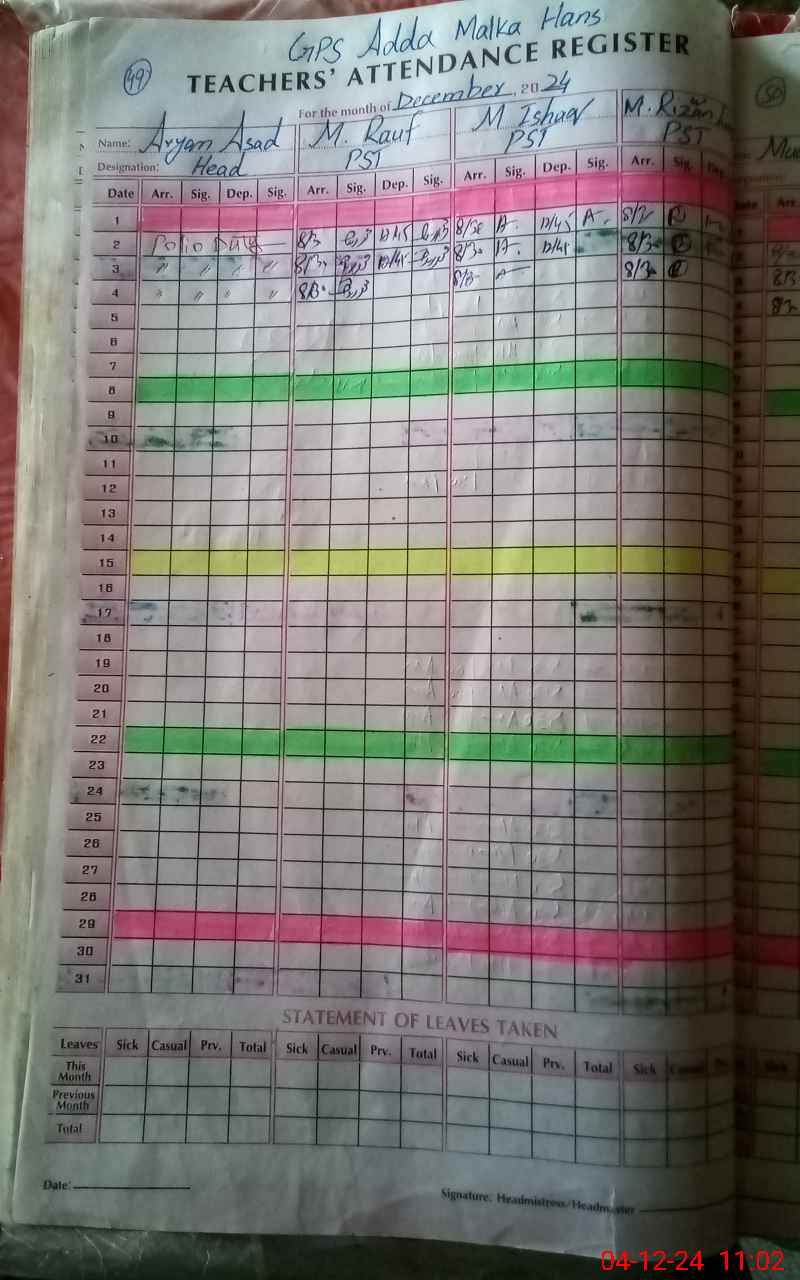 GPS Adda Malka Hans
49
TEACHERS' ATTENDANCE REGISTER
50
For the month of December, 2024
Name: Aryan Asad M. Rauf M Ishaq M. Rizwan
Designation: Head PST PST PST
Date Arr. Sig. Dep. Sig. Arr. Sig. Dep. Sig. Arr. Sig. Dep. Sig. Arr. Sig. Dep.
1
2 Polio Duty 8/3 8/30 A. A.
3 " " " " 8/30 8/30 A. 8/30
4 " " " " 8/30 8/30
5
6
7
8
9
10
11
12
13
14
15
16
17
18
19
20
21
22
23
24
25
26
27
28
29
30
31
STATEMENT OF LEAVES TAKEN
Leaves Sick Casual Prv. Total Sick Casual Prv. Total Sick Casual Prv. Total Sick Casual
This Month
Previous Month
Total
Date:
Signature: Headmistress/Headmaster
04-12-24 11:02